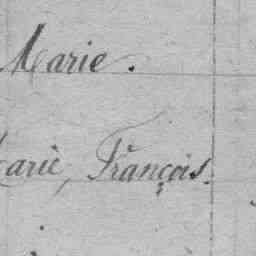 Marie.
Marie, François.